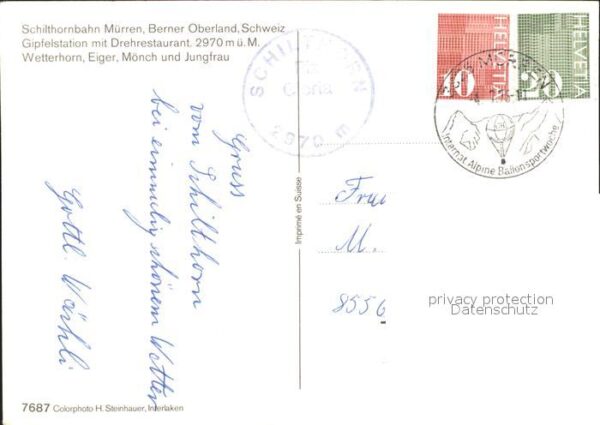 Schilthornbahn Mürren, Berner Oberland, Schweiz
Gipfelstation mit Drehrestaurant. 2970 m ü. M.
Wetterhorn, Eiger, Mönch und Jungfrau
SCHILTHORN
Piz
Gloria
2970 m
10
HELVETIA
50
HELVETIA
MÜRREN
Internat. Alpine Ballonsportwoche
Gruss
vom Schilthorn
bei einmalig schönem Wetter
Gottl. Wäshli
Imprimé en Suisse
Frau
M.
8556
privacy protection
Datenschutz
7687 Colorphoto H. Steinhauer, Interlaken